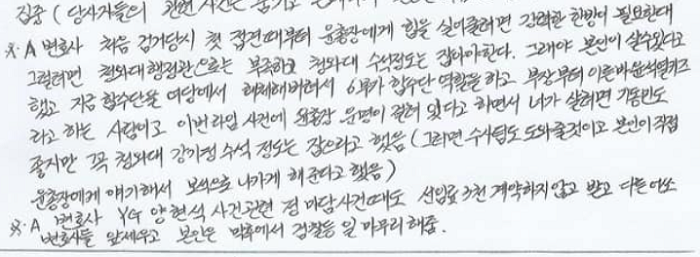 집중 ( 당사자들의 관련 사건은 숨기고
※. A 변호사 처음 검거당시 첫 접견때부터 윤총장에게 힘을 실어줄려면 강력한 한방이 필요한데
그럴려면 청와대행정관으로는 부족하고 청와대 수석정도는 잡아야한다. 그래야 본인이 살수있다고
했고 지금 합수단을 여당에서 해체해버려서 6부가 합수단 역할을 하고 부장부터 이른바윤석열키즈
라고 하는 사람이고 이번 라임 사건에 윤총장 운명이 걸려 있다고 하면서 너가 살려면 기동민도
좋지만 꼭 청와대 강기정 수석 정도는 잡으라고 했음 ( 그러면 수사팀도 도와줄것이고 본인이 직접
윤총장에게 얘기해서 보석으로 나가게 해준다고 했음 )
※. A 변호사 YG 양현석 사건관련 정 마담사건때도 선임료 3천 계약하지않고 받고 다른
변호사들 앞세우고 본인은 막후에서 검찰등 일 마무리 해줌.